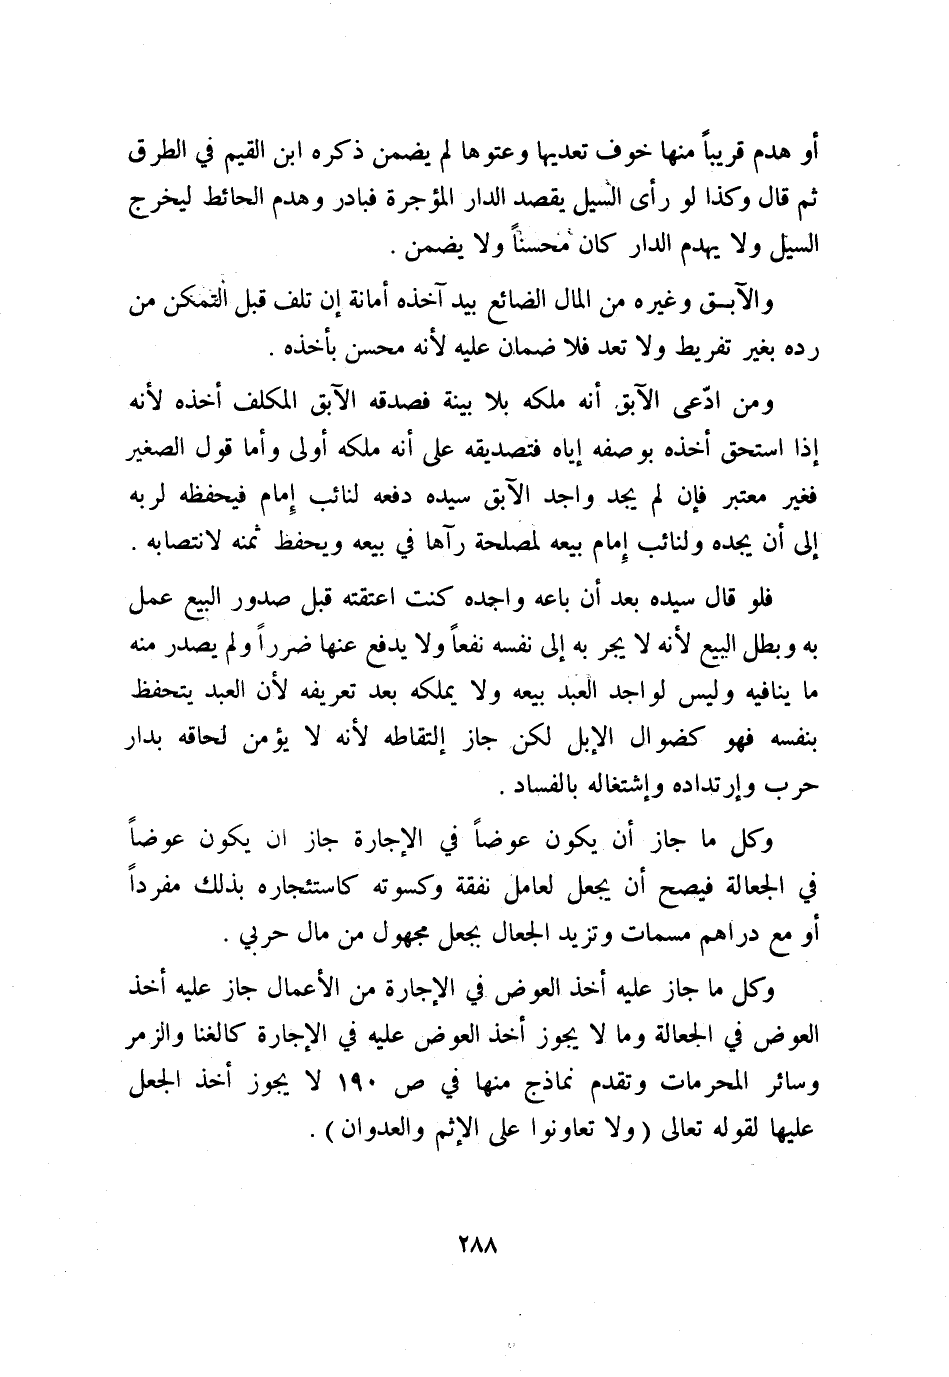 أو هدم قريباً منها خوف تعديها وعتوها لم يضمن ذكره ابن القيم في الطرق
ثم قال وكذا لو رأى السيل يقصد الدار المؤجرة فبادر وهدم الحائط ليخرج
السيل ولا يهدم الدار كان محسناً ولا يضمن .
والآبــق وغيره من المال الضائع بيد آخذه أمانة إن تلف قبل التمكن من
رده بغير تفريط ولا تعد فلا ضمان عليه لأنه محسن بأخذه .
ومن ادّعى الآبق أنه ملكه بلا بينة فصدقه الآبق المكلف أخذه لأنه
إذا استحق أخذه بوصفه إياه فتصديقه على أنه ملكه أولى وأما قول الصغير
فغير معتبر فإن لم يجد واجد الآبق سيده دفعه لنائب إمام فيحفظه لربه
إلى أن يجده ولنائب إمام بيعه لمصلحة رآها في بيعه ويحفظ ثمنه لانتصابه .
فلو قال سيده بعد أن باعه واجده كنت اعتقته قبل صدور البيع عمل
به وبطل البيع لأنه لا يجر به إلى نفسه نفعاً ولا يدفع عنها ضرراً ولم يصدر منه
ما ينافيه وليس لواجد العبد بيعه ولا يملكه بعد تعريفه لأن العبد يتحفظ
بنفسه فهو كضوال الإبل لكن جاز إلتقاطه لأنه لا يؤمن لحاقه بدار
حرب وإرتداده وإشتغاله بالفساد .
وكل ما جاز أن يكون عوضاً في الإجارة جاز ان يكون عوضاً
في الجعالة فيصح أن يجعل لعامل نفقة وكسوته كاستئجاره بذلك مفرداً
أو مع دراهم مسمات وتزيد الجعال بجعل مجهول من مال حربي .
وكل ما جاز عليه أخذ العوض في الإجارة من الأعمال جاز عليه أخذ
العوض في الجعالة وما لا يجوز أخذ العوض عليه في الإجارة كالغنا والزمر
وسائر المحرمات وتقدم نماذج منها في ص ١٩٠ لا يجوز أخذ الجعل
عليها لقوله تعالى ( ولا تعاونوا على الإثم والعدوان ) .
٢٨٨